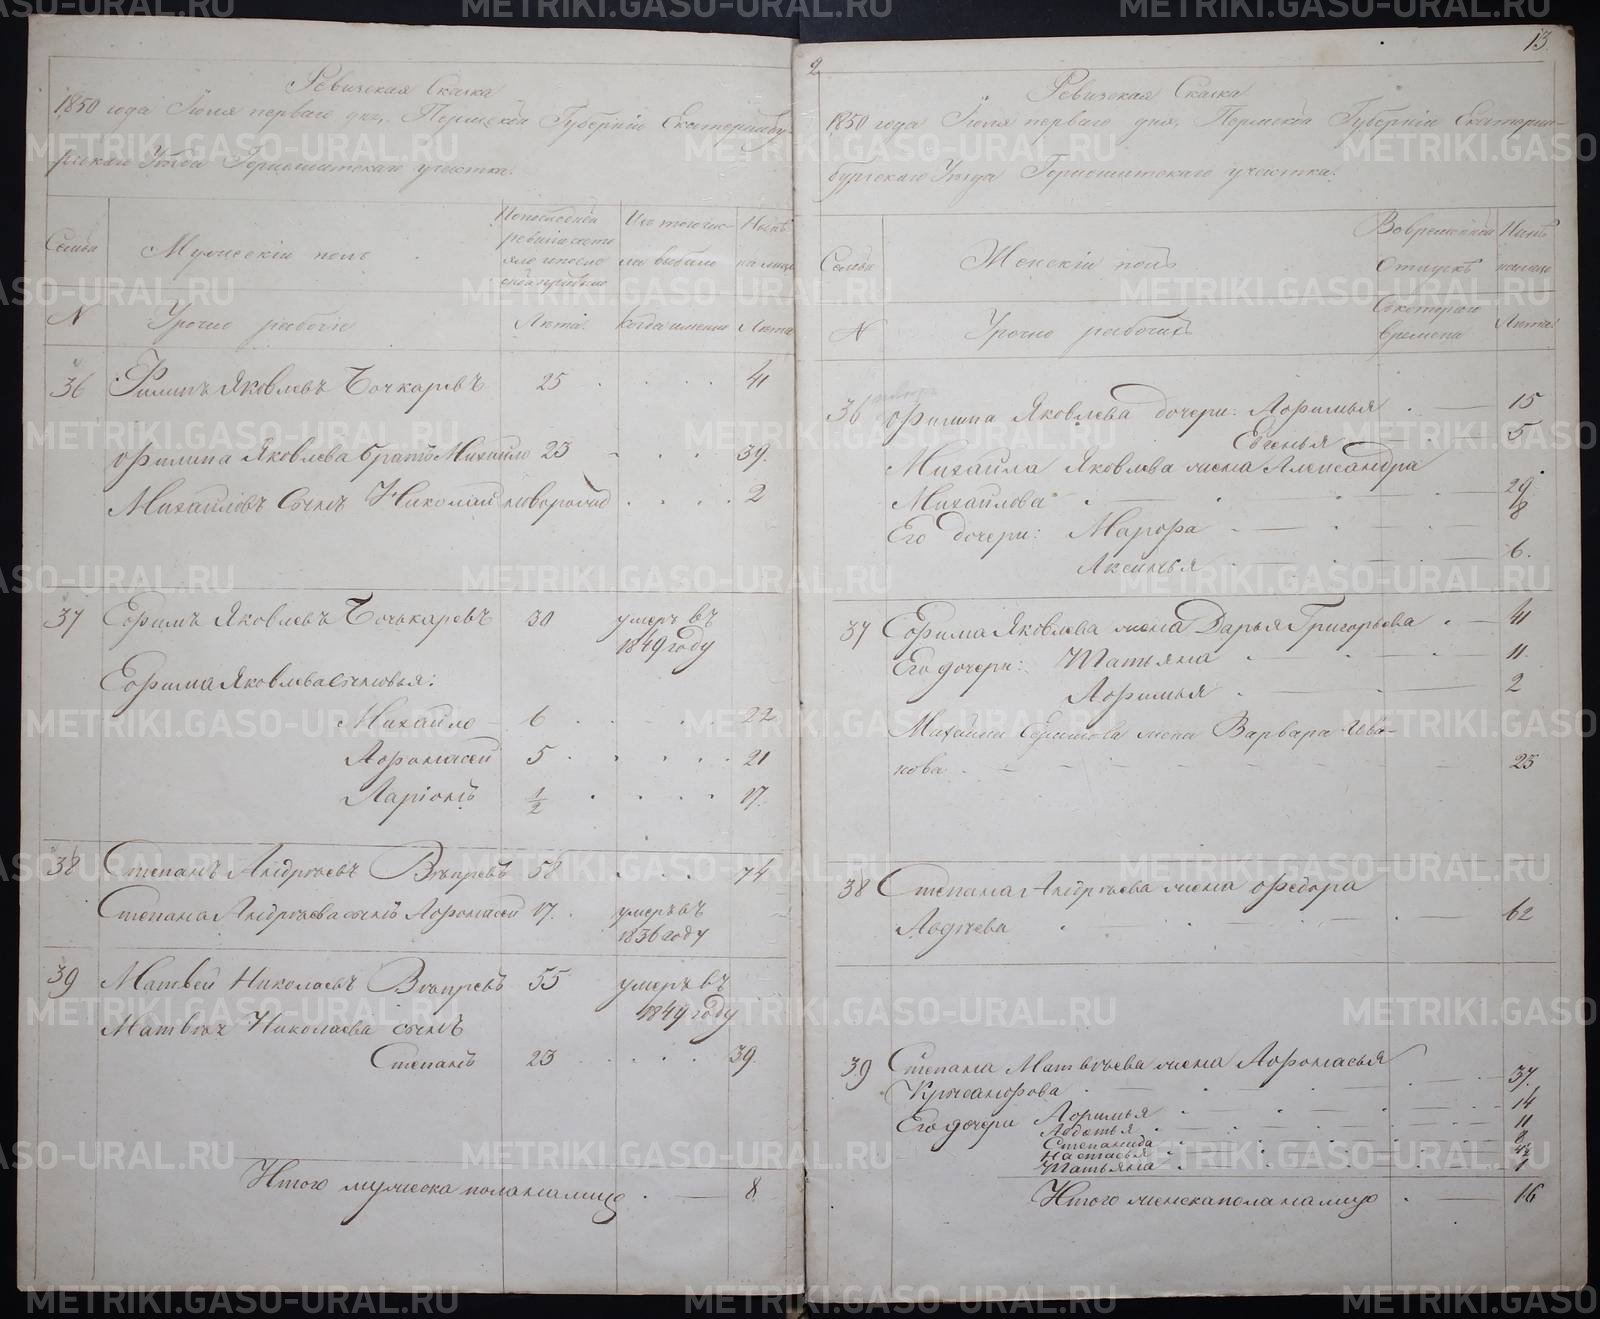 Ревизская Сказка
1850 года Июля перваго дня, Пермской Губернiи Екатеринбу-
ргскаго Уѣзда Горнощитскаго участка.
Семьи
Мужескiй полъ
По последней
ревизiи состо
яло и после
оной прибыло
Изъ того чис-
ла выбыло
Нынѣ
на лицо
N
Урочно рабочiе
Лѣта.
Когда именно
Лѣта
36
Филипъ Яковлевъ Бочкаревъ
25
41
Филипа Яковлева братъ Михайло
23
39.
Михайловъ сынъ Николай
новорожд
2
37
Ефимъ Яковлевъ Бочкаревъ
30
умеръ въ
1849 году
Ефима Яковлева сыновья:
Михайло
6
22
Афонасей
5
21
Ларiонъ
1/2
17.
38
Степанъ Андрѣевъ Вяпревъ
58
74
Степана Андрѣева сынъ Афонасей
17.
умеръ въ
1836 году
39
Матвей Николаевъ Вяпревъ
55
умеръ въ
1849 году
Матвѣя Николаева сынъ
Степанъ
23
39.
Итого мужеска пола на лицо
8
2
13
Ревизская Сказка
1850 года Июля перваго дня, Пермской Губернiи Екатерин-
бургскаго Уѣзда Горнощитскаго участка.
Семьи
Женскiй полъ
Во временной
Отлускѣ
Нынѣ
на лицо
N
Урочно рабочихъ
Съ котораго
времени
Лѣта
36
Филипа Яковлева дочери: Афимья
15
Евгенья
5
Михайла Яковлева жена Александра
Михайлова
29
Его дочери: Марфа
8
Аксинья
6.
37
Ефима Яковлева жена Дарья Григорьева
41
Его дочери: Татьяна
11.
Афимья
2
Михайлы Ефимова жена Варвара Ива-
нова
23
38
Степана Андрѣева жена Федора
Авдѣева
62
39
Степана Матвѣева жена Афонасья
37.
Его дочери
Афимья
14
Авдотья
11
Степанида
8
Настасья
Татьяна
1
Итого женска пола на лицо
16
METRIKI.GASO-URAL.RU